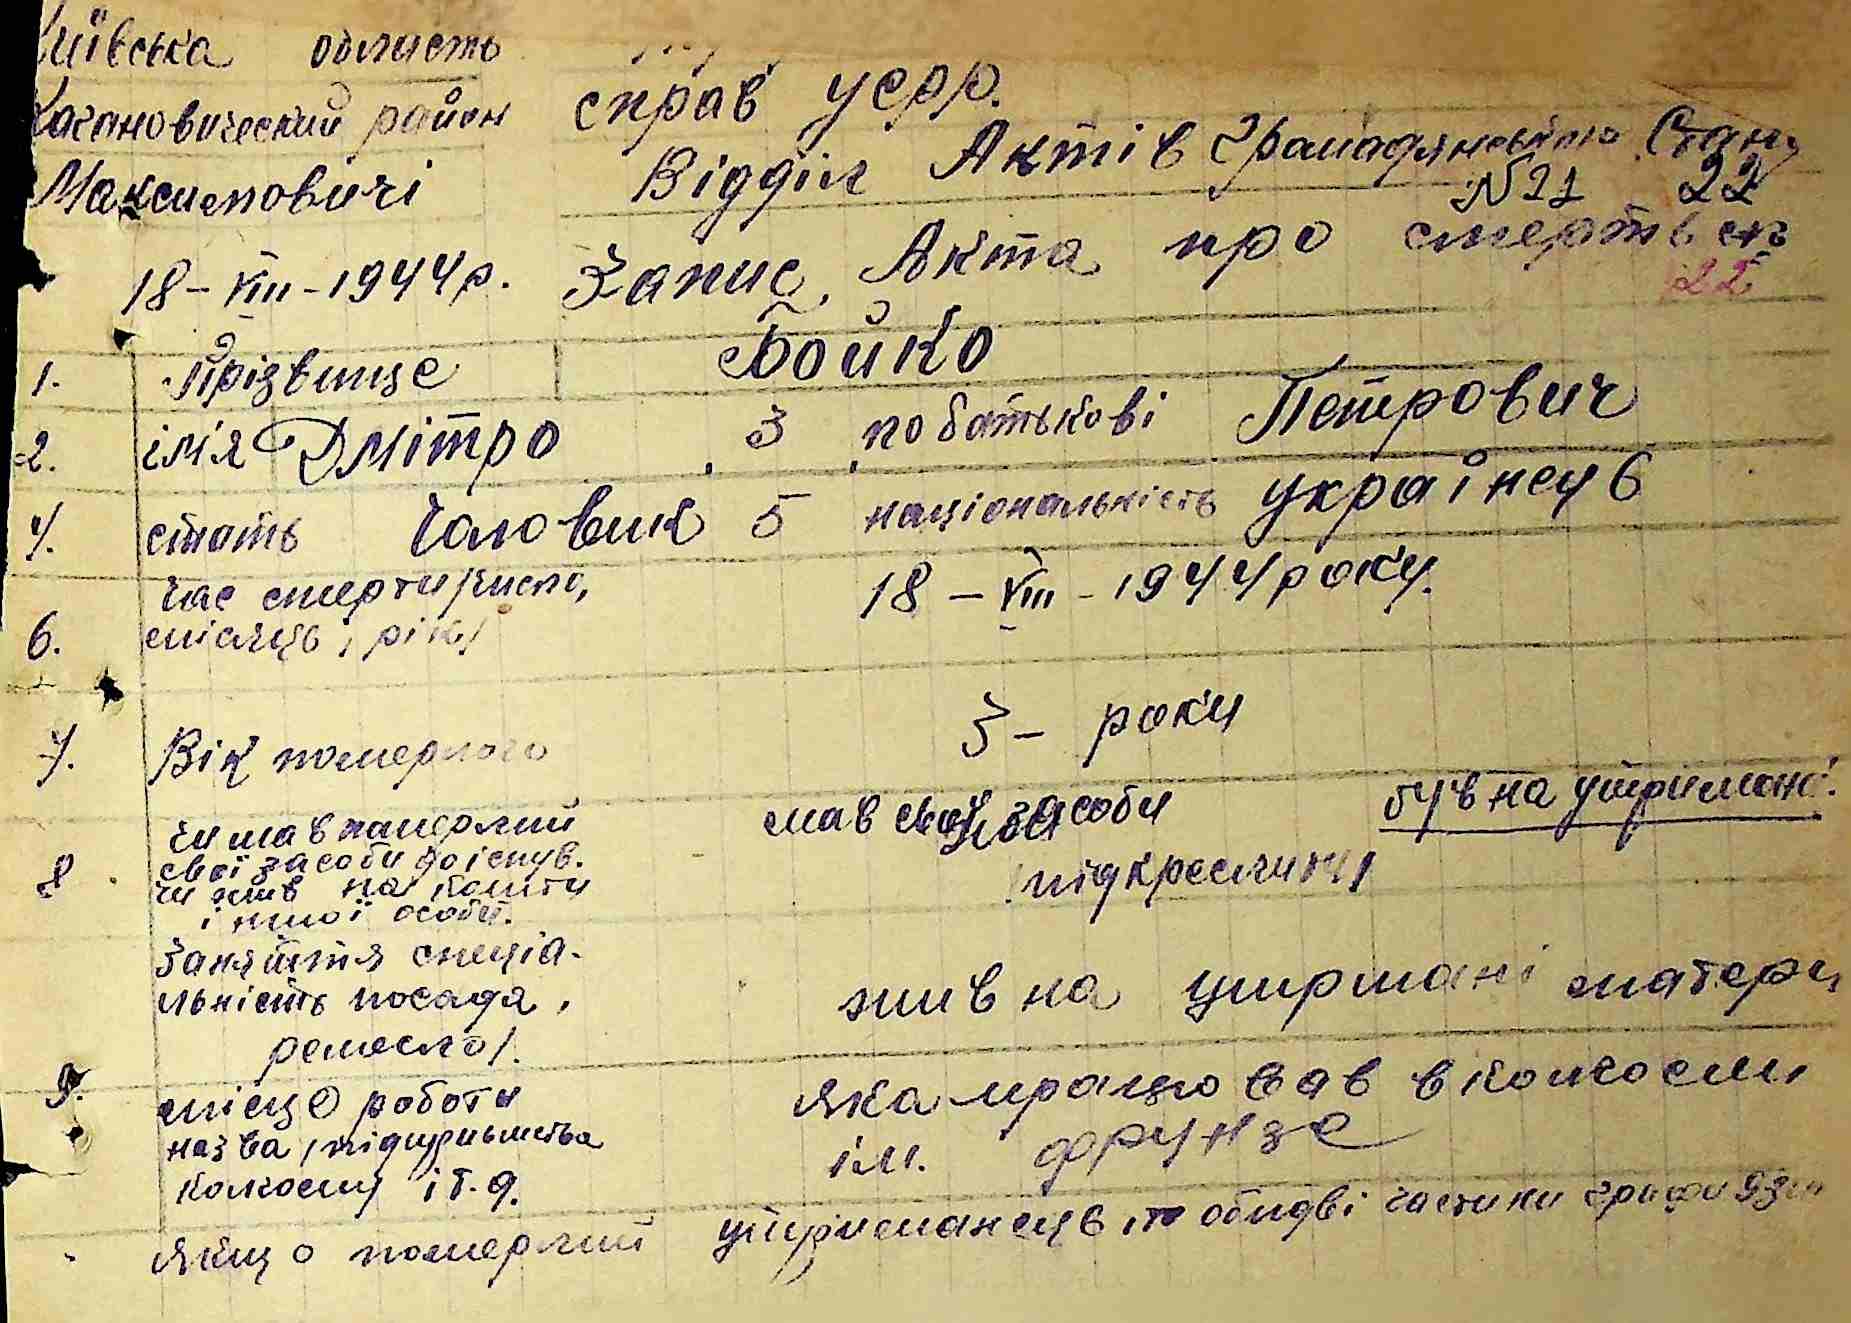 Київська область
справ УСРР.
Кагановический район
Відділ Актів Громадянського Стану
Максимовичі
№21 22
18-VIII-1944 р. Запис Акта про смерть
22
1. Прізвище Бойко
2. імя Дмітро 3 по батькові Петрович
4. стать Чоловик 5 національність українець
час смерти /число,
6. місяць, рік/ 18-VIII-1944 року.
7. Вік померлого 3- роки
чи мав памерлий мав свої засоби був на утримані
8 свої засоби до існув. /підкреслити/
чи жив на кошти
іншої особи.
Заняття спеціа-
льність посада, жив на утрмані матери
ремесло/.
9. місце роботи яка працював в колгоспи
назва, підприємства ім. фрунзе
колгоспу і т.д.
якщо померлий утриманець то обидві частини графи 9